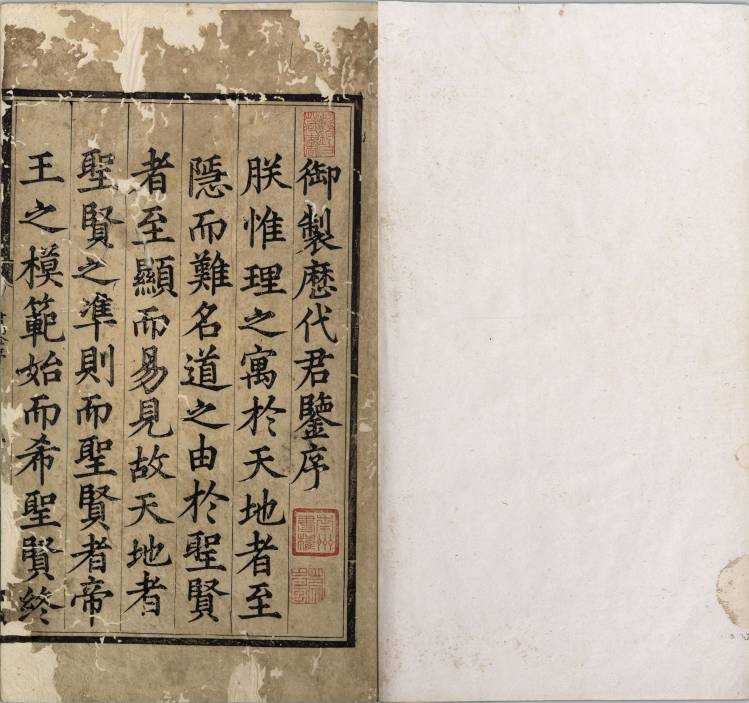 御製歷代君鑒序
朕惟理之寓於天地者至
隱而難名道之由於聖賢
者至顯而易見故天地者
聖賢之凖則而聖賢者帝
王之模範始而希聖賢終